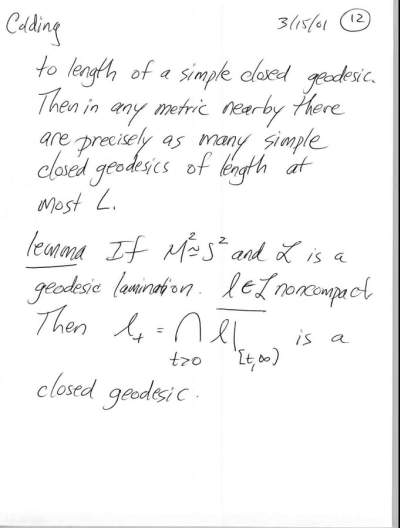 Colding 3/15/01 12
to length of a simple closed geodesic.
Then in any metric nearby there
are precisely as many simple
closed geodesics of length at
most L.
lemma If M² ≃ S² and ℒ is a
geodesic lamination. l ∈ ℒ noncompact
Then l₊ = ⋂_{t>0} \overline{l|_{[t,∞)}} is a
closed geodesic.